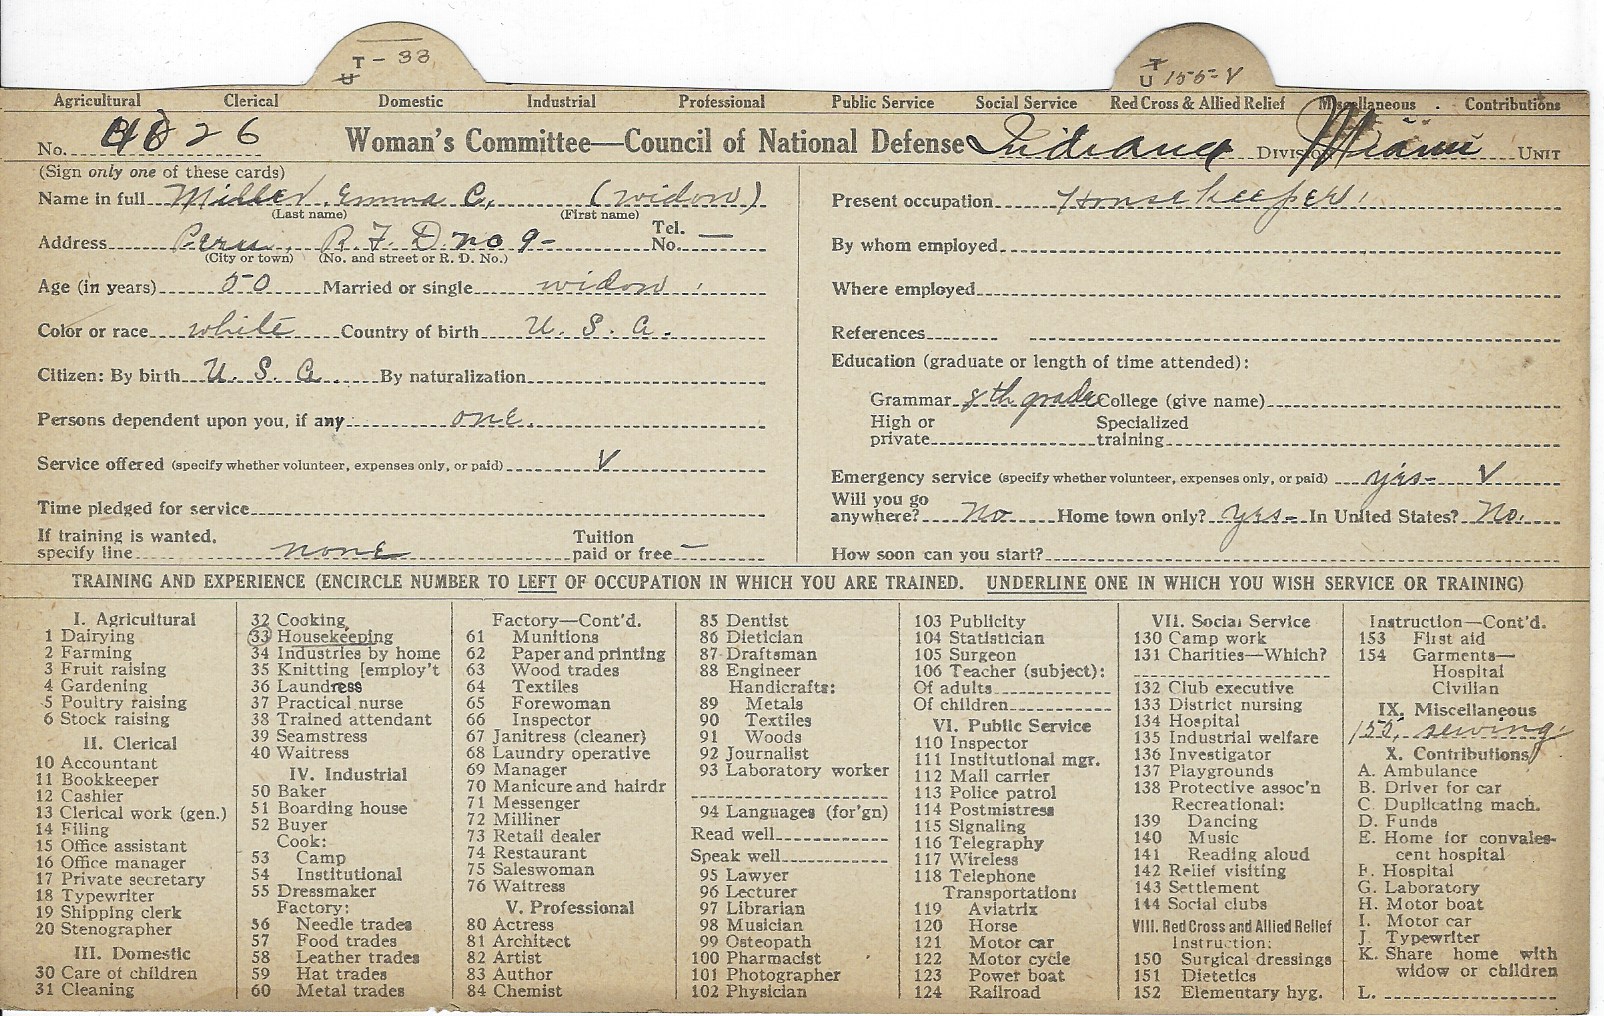 T - 33
U
T
U 155-V
Agricultural Clerical Domestic Industrial Professional Public Service Social Service Red Cross & Allied Relief Miscellaneous Contributions
No. 26 Woman's Committee—Council of National Defense Indiana DIVISION Miami UNIT
(Sign only one of these cards)
Name in full Miller, Emma C. (widow)
(Last name) (First name)
Address Peru, R. F. D no 9- Tel. No. —
(City or town) (No. and street or R. D. No.)
Age (in years) 50 Married or single widow
Color or race white Country of birth U. S. a.
Citizen: By birth U. S. a. By naturalization
Persons dependent upon you, if any one.
Service offered (specify whether volunteer, expenses only, or paid) V
Time pledged for service
If training is wanted, specify line none Tuition paid or free —
Present occupation Housekeeper
By whom employed
Where employed
References
Education (graduate or length of time attended):
Grammar 8th grade College (give name)
High or private Specialized training
Emergency service (specify whether volunteer, expenses only, or paid) yes- V
Will you go anywhere? No Home town only? yes- In United States? No.
How soon can you start?
TRAINING AND EXPERIENCE (ENCIRCLE NUMBER TO LEFT OF OCCUPATION IN WHICH YOU ARE TRAINED. UNDERLINE ONE IN WHICH YOU WISH SERVICE OR TRAINING)
I. Agricultural
1 Dairying
2 Farming
3 Fruit raising
4 Gardening
5 Poultry raising
6 Stock raising
II. Clerical
10 Accountant
11 Bookkeeper
12 Cashier
13 Clerical work (gen.)
14 Filing
15 Office assistant
16 Office manager
17 Private secretary
18 Typewriter
19 Shipping clerk
20 Stenographer
III. Domestic
30 Care of children
31 Cleaning
32 Cooking
33 Housekeeping
34 Industries by home
35 Knitting [employ't
36 Laundress
37 Practical nurse
38 Trained attendant
39 Seamstress
40 Waitress
IV. Industrial
50 Baker
51 Boarding house
52 Buyer
Cook:
53 Camp
54 Institutional
55 Dressmaker
Factory:
56 Needle trades
57 Food trades
58 Leather trades
59 Hat trades
60 Metal trades
Factory—Cont'd.
61 Munitions
62 Paper and printing
63 Wood trades
64 Textiles
65 Forewoman
66 Inspector
67 Janitress (cleaner)
68 Laundry operative
69 Manager
70 Manicure and hairdr
71 Messenger
72 Milliner
73 Retail dealer
74 Restaurant
75 Saleswoman
76 Waitress
V. Professional
80 Actress
81 Architect
82 Artist
83 Author
84 Chemist
85 Dentist
86 Dietician
87 Draftsman
88 Engineer
Handicrafts:
89 Metals
90 Textiles
91 Woods
92 Journalist
93 Laboratory worker
94 Languages (for'gn)
Read well
Speak well
95 Lawyer
96 Lecturer
97 Librarian
98 Musician
99 Osteopath
100 Pharmacist
101 Photographer
102 Physician
103 Publicity
104 Statistician
105 Surgeon
106 Teacher (subject):
Of adults
Of children
VI. Public Service
110 Inspector
111 Institutional mgr.
112 Mail carrier
113 Police patrol
114 Postmistress
115 Signaling
116 Telegraphy
117 Wireless
118 Telephone
Transportation:
119 Aviatrix
120 Horse
121 Motor car
122 Motor cycle
123 Power boat
124 Railroad
VII. Social Service
130 Camp work
131 Charities—Which?
132 Club executive
133 District nursing
134 Hospital
135 Industrial welfare
136 Investigator
137 Playgrounds
138 Protective assoc'n
Recreational:
139 Dancing
140 Music
141 Reading aloud
142 Relief visiting
143 Settlement
144 Social clubs
VIII. Red Cross and Allied Relief
Instruction:
150 Surgical dressings
151 Dietetics
152 Elementary hyg.
Instruction—Cont'd.
153 First aid
154 Garments—
Hospital
Civilian
IX. Miscellaneous
155, sewing
X. Contributions
A. Ambulance
B. Driver for car
C. Duplicating mach.
D. Funds
E. Home for convales-
cent hospital
F. Hospital
G. Laboratory
H. Motor boat
I. Motor car
J. Typewriter
K. Share home with
widow or children
L.